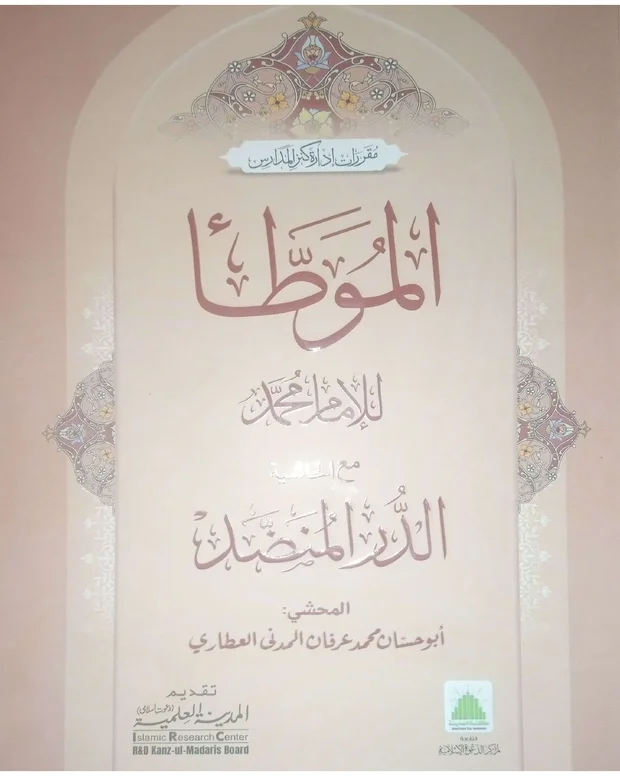 مُقَرَرَات إدَارَة كَنزِ المَدَارِس
المُوَطَّأ
للإمام محُمَّد
مع الحاشية
الدُّر المُنَضَّد
المحشي:
أبو حسَّان محمد عرفان المدني العطاري
تقديم
المدينة العلمية (دعوت اسلامی)
Islamic Research Center
R&D Kanz-ul-Madaris Board
مكتبة المدينة
لمركز الدعوة الإسلامية